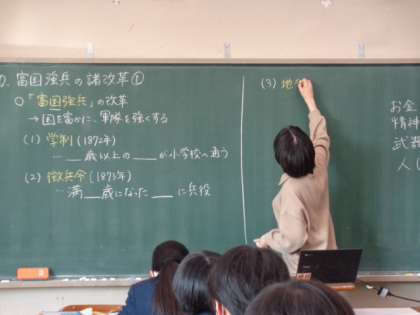 富国強兵の諸改革①
○「富国強兵」の改革
→国を富かに、軍隊を強くする
(1) 学制 (1872年)
… __歳以上の __ が小学校へ通う
(2) 徴兵令 (1873年)
… 満__歳になった __ に兵役
(3) 地
お金
精神
武器
人(